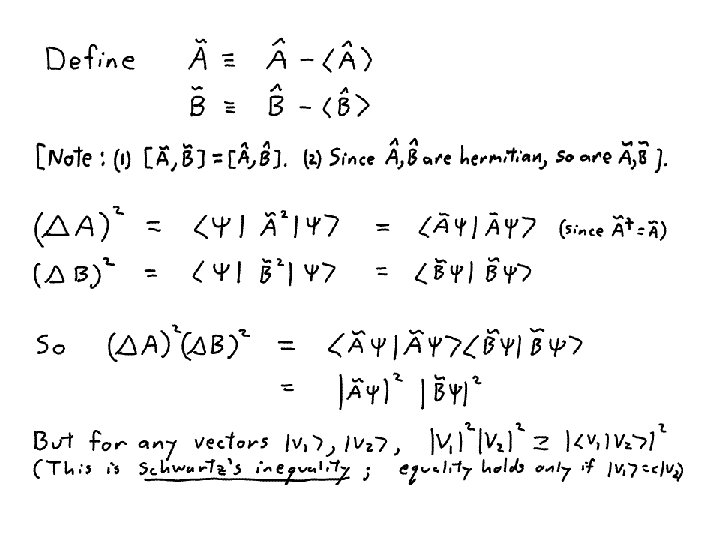 Define Ă ≡ Â - ⟨Â⟩
B̆ ≡ B̂ - ⟨B̂⟩
[Note: (1) [Ă,B̆]=[Â,B̂]. (2) Since Â,B̂ are hermitian, so are Ă,B̆].
(ΔA)² = ⟨Ψ| Ă² |Ψ⟩ = ⟨ĂΨ|ĂΨ⟩ (since Ă†=Ă)
(ΔB)² = ⟨Ψ| B̆² |Ψ⟩ = ⟨B̆Ψ|B̆Ψ⟩
So (ΔA)²(ΔB)² = ⟨ĂΨ|ĂΨ⟩⟨B̆Ψ|B̆Ψ⟩
= |ĂΨ|² |B̆Ψ|²
But for any vectors |V₁⟩, |V₂⟩, |V₁|²|V₂|² ≥ |⟨V₁|V₂⟩|²
(This is Schwartz's inequality; equality holds only if |V₁⟩=c|V₂⟩)